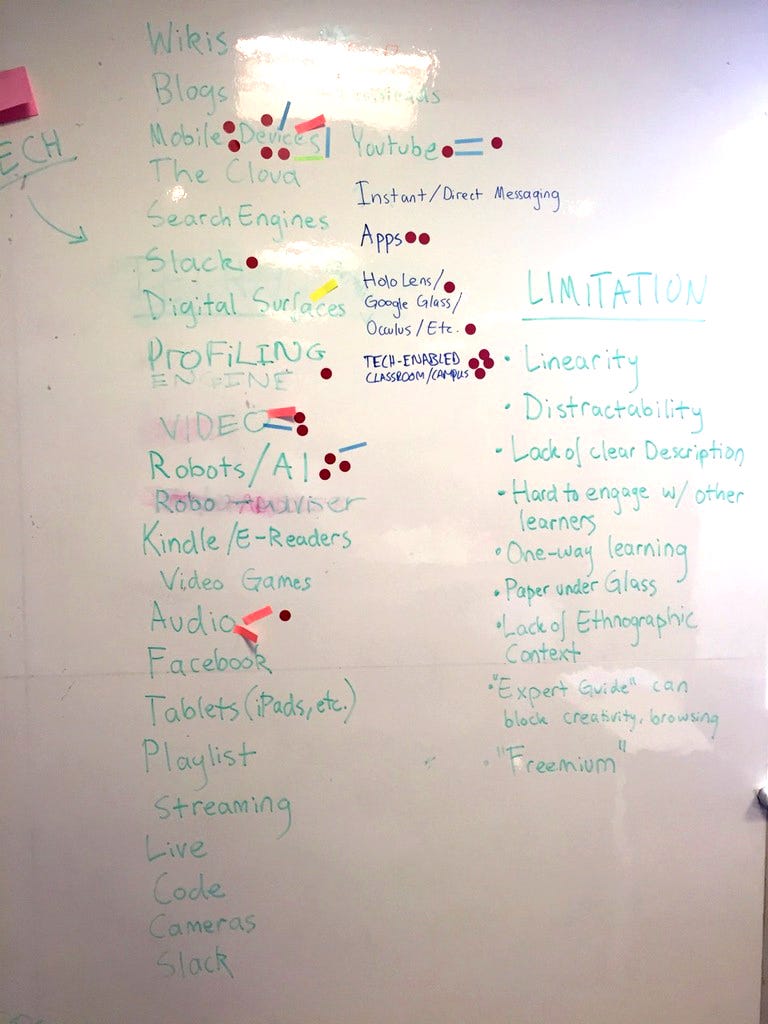 ECH
Wikis
Blogs
Mobile Devices
The Cloud
Search Engines
Slack
Digital Surfaces
PROFILING
ENGINE
VIDEO
Robots/AI
Robo
Kindle/E-Readers
Video Games
Audio
Facebook
Tablets (iPads, etc.)
Playlist
Streaming
Live
Code
Cameras
Slack
Youtube
Instant/Direct Messaging
Apps
Holo Lens/
Google Glass/
Occulus/Etc.
TECH-ENABLED
CLASSROOM/CAMPUS
LIMITATION
• Linearity
• Distractability
• Lack of clear Description
• Hard to engage w/ other
learners
• One-way learning
• Paper under Glass
• Lack of Ethnographic
Context
• "Expert Guide" can
block creativity, browsing
• "Freemium"